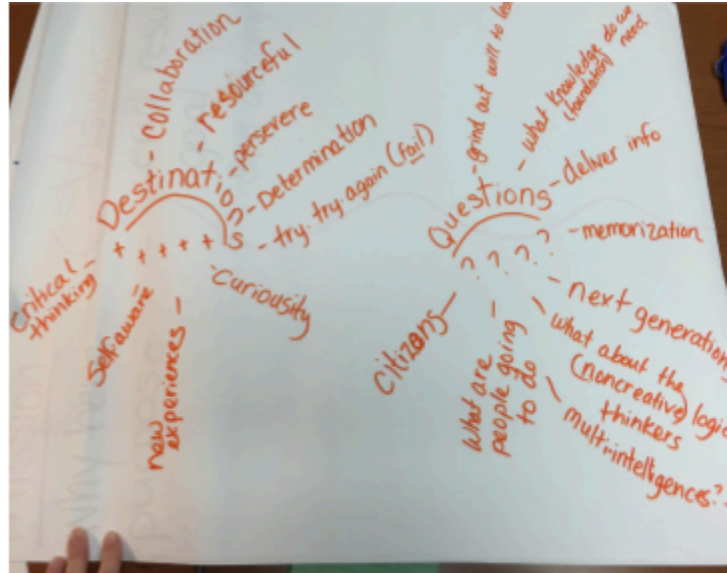 Destinations
- Collaboration
- resourceful
- persevere
- Determination
- try try again (fail)
- Curiousity
new experiences -
Self aware -
Critical -
thinking
+ + + + +
Questions
- grind out will to
- what knowledge do we
(foundation) need
- deliver info
- memorization
- next generation
- what about the
(noncreative) logic
thinkers
- multi..intelligences?
What are
people going
to do
Citizens -
? ? ? ?
why